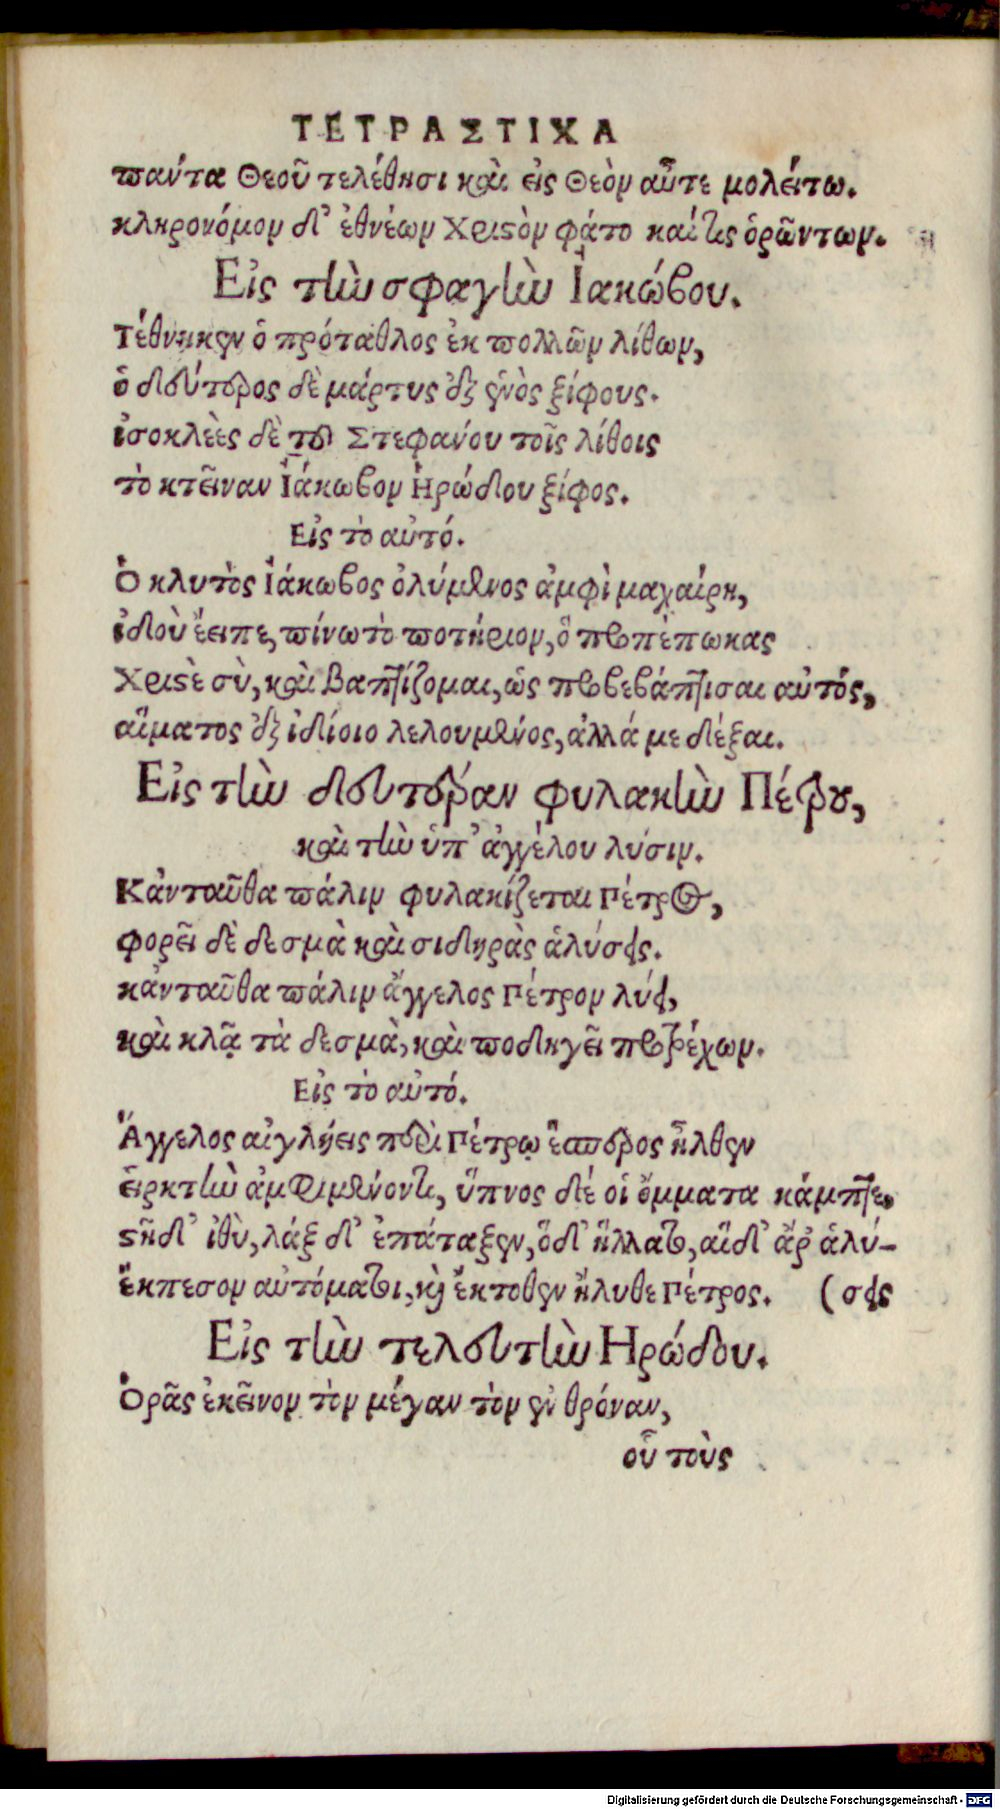 ΤΕΤΡΑΣΤΙΧΑ
πάντα Θεοῦ τελέθησι καὶ εἰς Θεὸν αὖτε μολείτω.
κληρονόμον δ' ἐθνέων Χριστὸν φάτο καί τις ὁρώντων.
Εἰς τὴν σφαγὴν Ἰακώβου.
Τέθνηκεν ὁ πρόταθλος ἐκ πολλῶν λίθων,
ὁ δεύτερος δὲ μάρτυς ἐξ ἑνὸς ξίφους.
ἰσοκλεὲς δὲ τοῦ Στεφάνου τοῖς λίθοις
τὸ κτεῖναν Ἰάκωβον Ἡρώδου ξίφος.
Εἰς τὸ αὐτό.
Ὁ κλυτὸς Ἰάκωβος ὀλύμενος ἀμφὶ μαχαίρη,
ἰδοὺ ἔειπε, πίνω τὸ ποτήριον, ὃ προπέπωκας
Χριστὲ σὺ, καὶ βαπτίζομαι, ὡς προβεβάπτισαι αὐτός,
αἵματος ἐξ ἰδίοιο λελουμένος, ἀλλά με δέξαι.
Εἰς τὴν δευτέραν φυλακὴν Πέτρου,
καὶ τὴν ὑπ' ἀγγέλου λύσιν.
Κἀνταῦθα πάλιν φυλακίζεται Πέτρος,
φορεῖ δὲ δεσμὰ καὶ σιδηρὰς ἁλύσεις.
κἀνταῦθα πάλιν ἄγγελος Πέτρον λύει,
καὶ κλᾷ τὰ δεσμὰ, καὶ ποδηγεῖ προτρέχων.
Εἰς τὸ αὐτό.
Ἄγγελος αἰγλήεις ποτὶ Πέτρῳ ἕσπερος ἦλθεν
εἱρκτὴν ἀμφιμένοντι, ὕπνος δέ οἱ ὄμματα κάμπτε,
στῆ δ' ἰθὺ, λάξ δ' ἐπάταξεν, ὁ δ' ἥλλατο, αἱ δ' ἄρ' ἁλύ-
ἔκπεσον αὐτόματοι, καὶ ἔκτοθεν ἤλυθε Πέτρος. (σεις
Εἰς τὴν τελευτὴν Ἡρώδου.
Ὁρᾷς ἐκεῖνον τὸν μέγαν τὸν ἐν θρόναν,
οὗ τοὺς
Digitalisierung gefördert durch die Deutsche Forschungsgemeinschaft - DFG